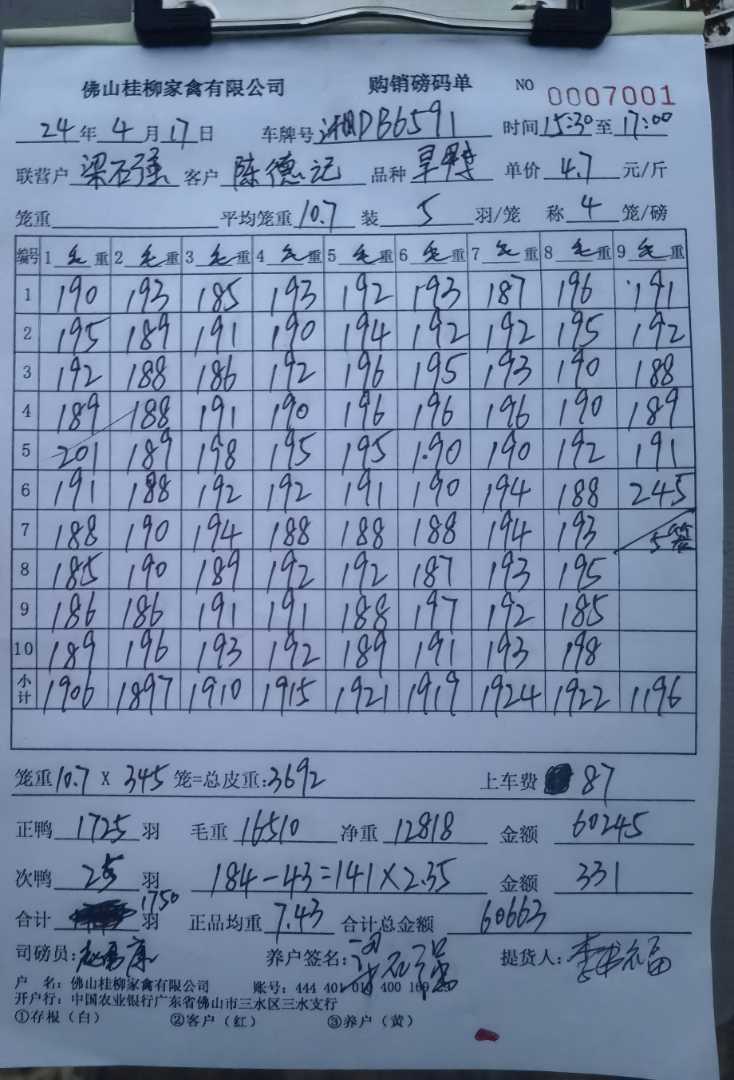 佛山桂柳家禽有限公司 购销磅码单 NO 0007001
24年4月17日 车牌号 湘DB6591 时间15:30至17:00
联营户 梁石强 客户 陈德记 品种 旱鸭 单价 4.7 元/斤
笼重 平均笼重10.7 装 5 羽/笼 称 4 笼/磅
编号 1 毛重 2 毛重 3 毛重 4 毛重 5 毛重 6 毛重 7 毛重 8 毛重 9 毛重
1 190 193 185 193 192 193 187 196 191
2 195 189 191 190 194 192 192 195 192
3 192 188 186 192 196 195 193 190 188
4 189 188 191 190 196 196 196 190 189
5 201 189 198 195 195 190 190 192 191
6 191 188 192 192 191 190 194 188 245
7 188 190 194 188 188 188 194 193 5笼
8 185 190 189 192 192 187 193 195
9 186 186 191 191 188 197 192 185
10 189 196 193 192 189 191 193 198
小计 1906 1897 1910 1915 1921 1919 1924 1922 1196
笼重10.7 X 345 笼=总皮重:3692 上车费 87
正鸭 1725 羽 毛重 16510 净重 12818 金额 60245
次鸭 25 羽 184-43=141×2.35 金额 331
合计 1750 羽 正品均重 7.43 合计总金额 60663
司磅员: 养户签名: 提货人:
户 名: 佛山桂柳家禽有限公司 账号: 444 401 010 400 169
开户行: 中国农业银行广东省佛山市三水区三水支行
①存根(白) ②客户(红) ③养户(黄)